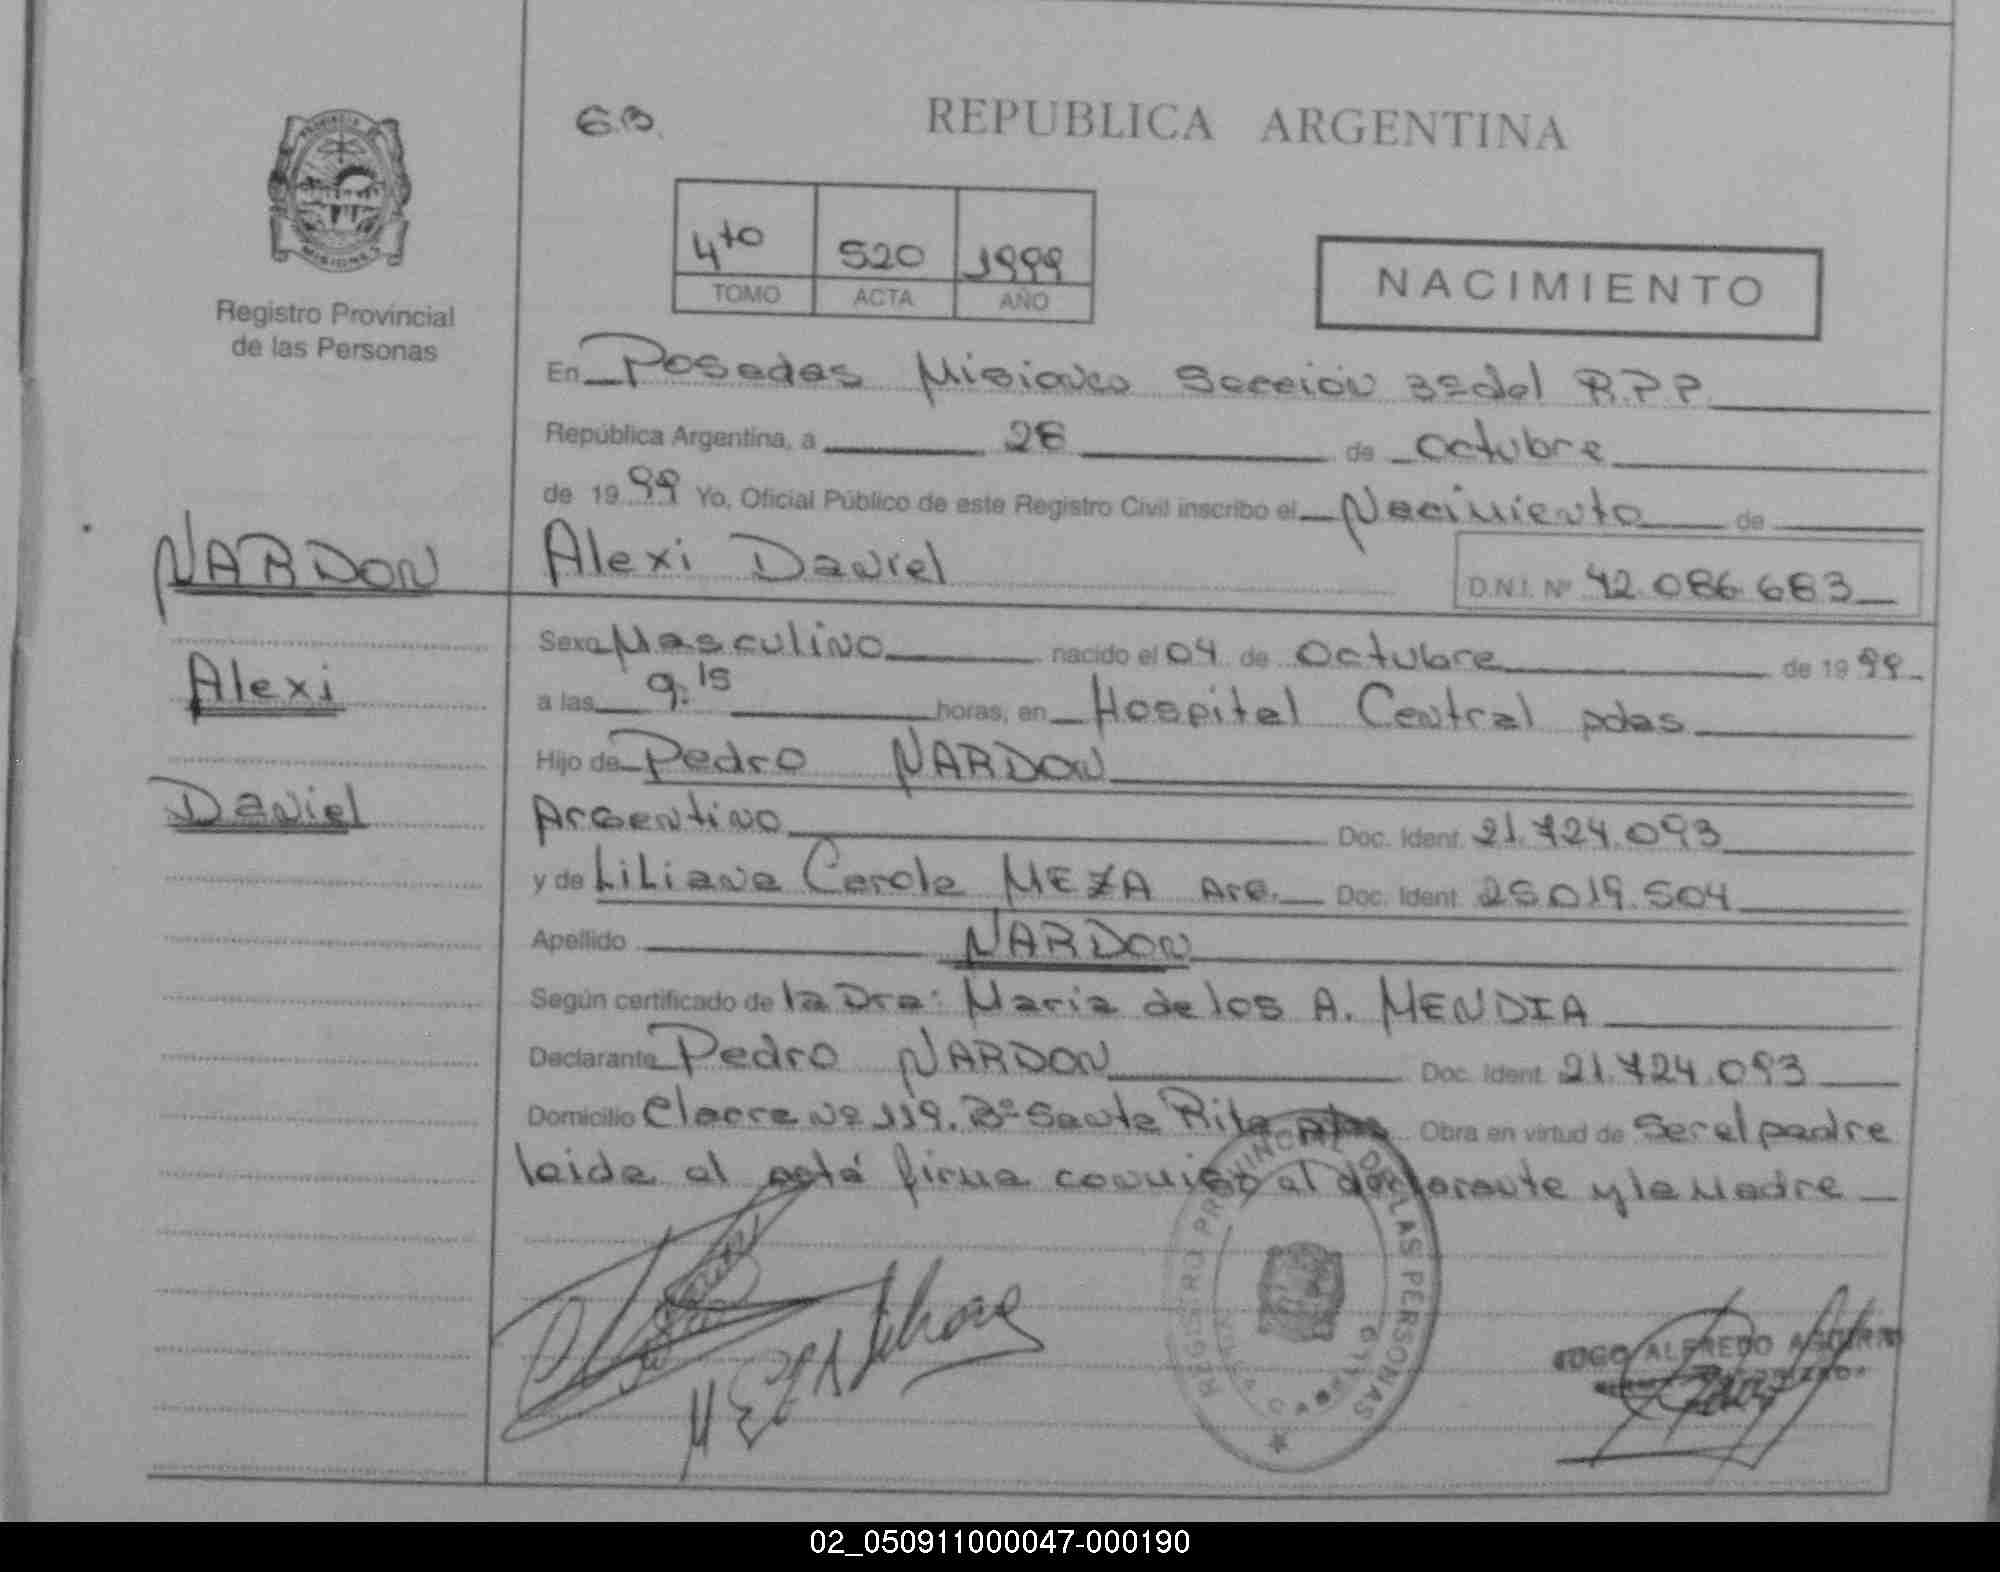 G.B.
REPUBLICA ARGENTINA
PROVINCIA DE
MISIONES
Registro Provincial
de las Personas
4to 520 1999
TOMO ACTA AÑO
NACIMIENTO
En Posadas Misiones Sección 3º del R.P.P.
República Argentina, a 28 de Octubre
de 1999 Yo, Oficial Público de este Registro Civil inscribo el Nacimiento de
NARDON Alexi Daniel D.N.I. Nº 42.086.683
Sexo Masculino nacido el 04 de Octubre de 1999
Alexi
a las 9:15 horas, en Hospital Central pdas
Hijo de Pedro NARDON
Daniel
Argentino Doc. Ident. 21.724.093
y de Liliana Carola MEZA Arg. Doc. Ident. 25.019.504
Apellido NARDON
Según certificado de la Dra: Maria de los A. MENDIA
Declarante Pedro NARDON Doc. Ident. 21.724.093
Domicilio Nº 119. Bº Santa Rita pdas Obra en virtud de Ser el padre
leida el acta firma conmigo el declarante y la Madre
REGISTRO PROVINCIAL DE LAS PERSONAS
MEZA Liliana
ALFREDO
02_050911000047-000190